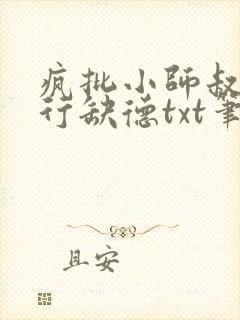 疯批小师叔
行缺德txt笔
且安